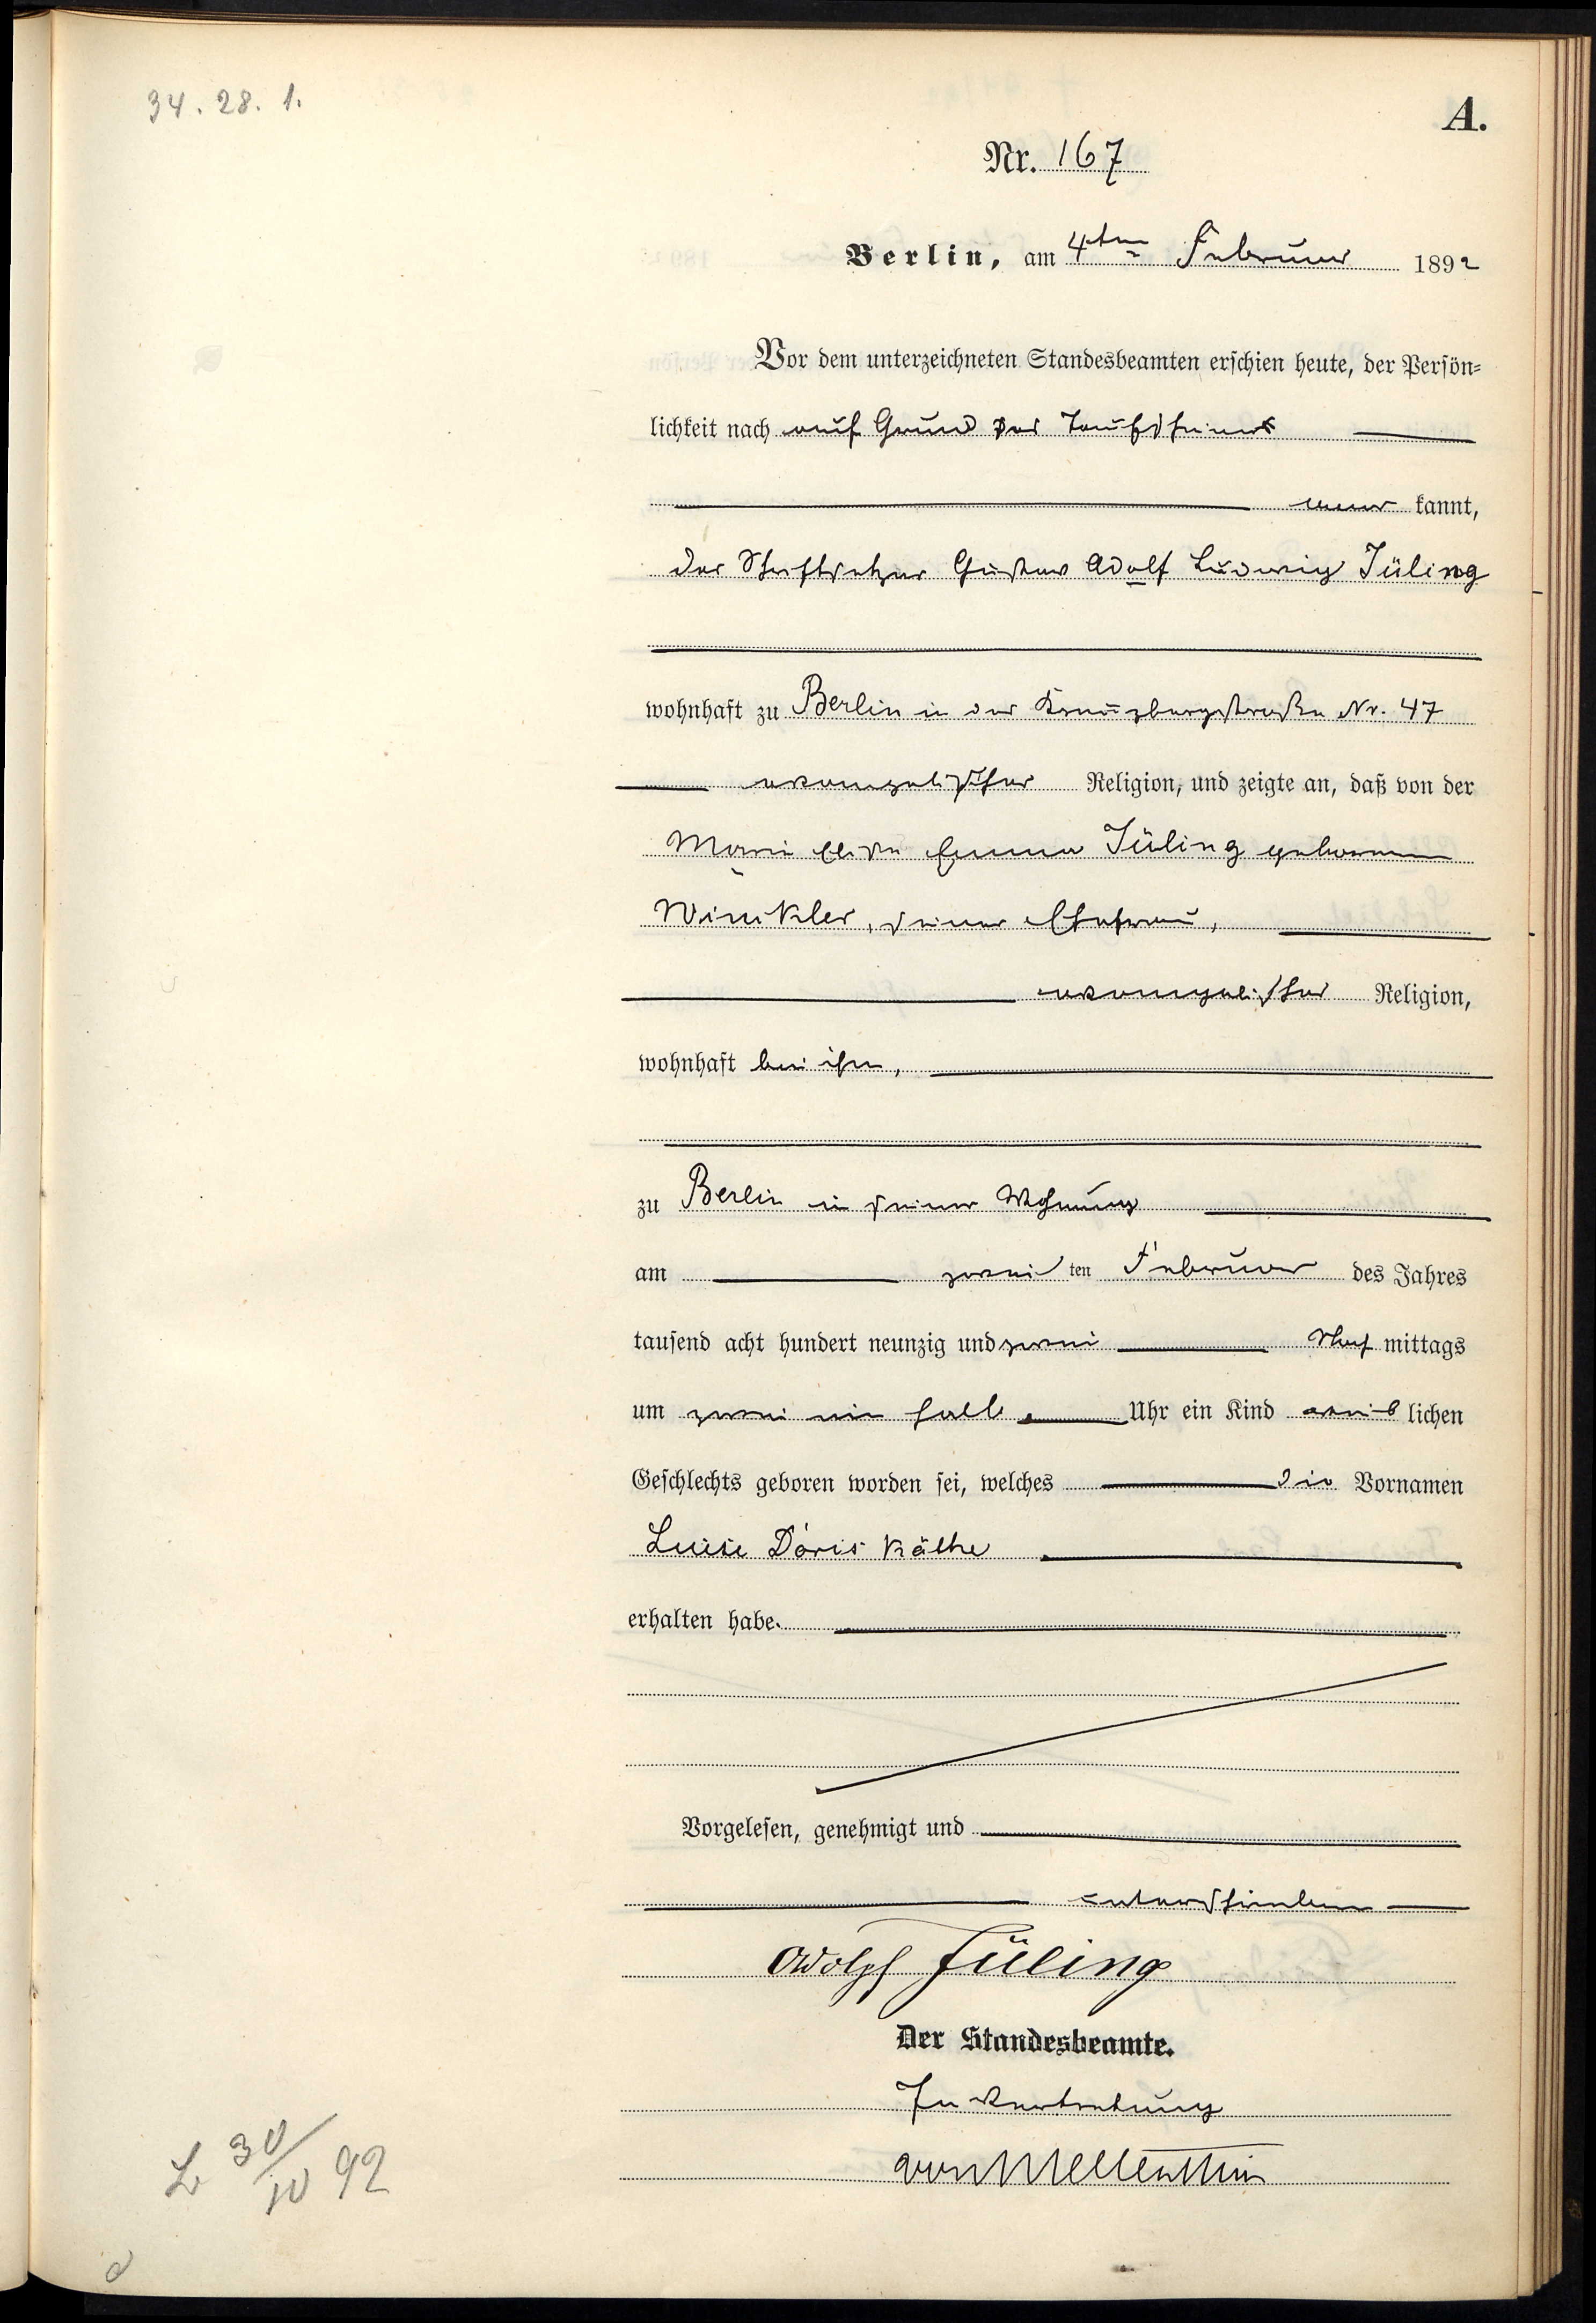 34. 28. 1.
A.
Nr. 167
Berlin, am 4ten Februar 1892
Vor dem unterzeichneten Standesbeamten erschien heute, der Persön=
lichkeit nach auf Grund des Taufscheines
aner kannt,
der Schriftsetzer Gustav Adolf Ludwig Jüling
wohnhaft zu Berlin in der Kreuzbergstraße Nr. 47
evangelischer Religion, und zeigte an, daß von der
Marie Elise Emma Jüling geborenen
Winkler, seiner Ehefrau,
evangelischer Religion,
wohnhaft bei ihm,
zu Berlin in seiner Wohnung
am zwei ten Februar des Jahres
tausend acht hundert neunzig und zwei Nach mittags
um zwei ein halb Uhr ein Kind weib lichen
Geschlechts geboren worden sei, welches die Vornamen
Luise Doris Käthe
erhalten habe.
Vorgelesen, genehmigt und
unterschrieben
Adolph Jüling
Der Standesbeamte.
In Vertretung
von Mellenthin
L 30/IV 92